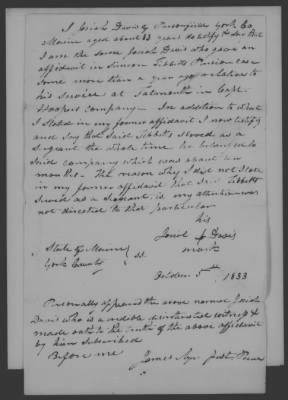 I Josiah Davis of Parsonsfield York Co.
Maine aged about 83 years do testify & say that
I am the same Josiah Davis who gave an
affidavit in Simeon Tibbetts Pension case
some more than a year ago relation to
his service at Falmouth in Capt.
Hoopers company. In addition to what
I stated in my former affidavit I now testify
and say that said Tibbetts served as a
Sergeant the whole time he belonged to
said company which was about
months. The reason why I did not state
in my former affidavit that said Tibbetts
served as a Sergeant, is, my attention was
not directed to that particular
his
Josiah Davis
mark
State of Maine
York County ss.
October 5th 1833
Personally appeared the above named Josiah
Davis who is a credible disinterested witness &
made oath to the truth of the above affidavit
by him subscribed
Before me
James Just. Peace